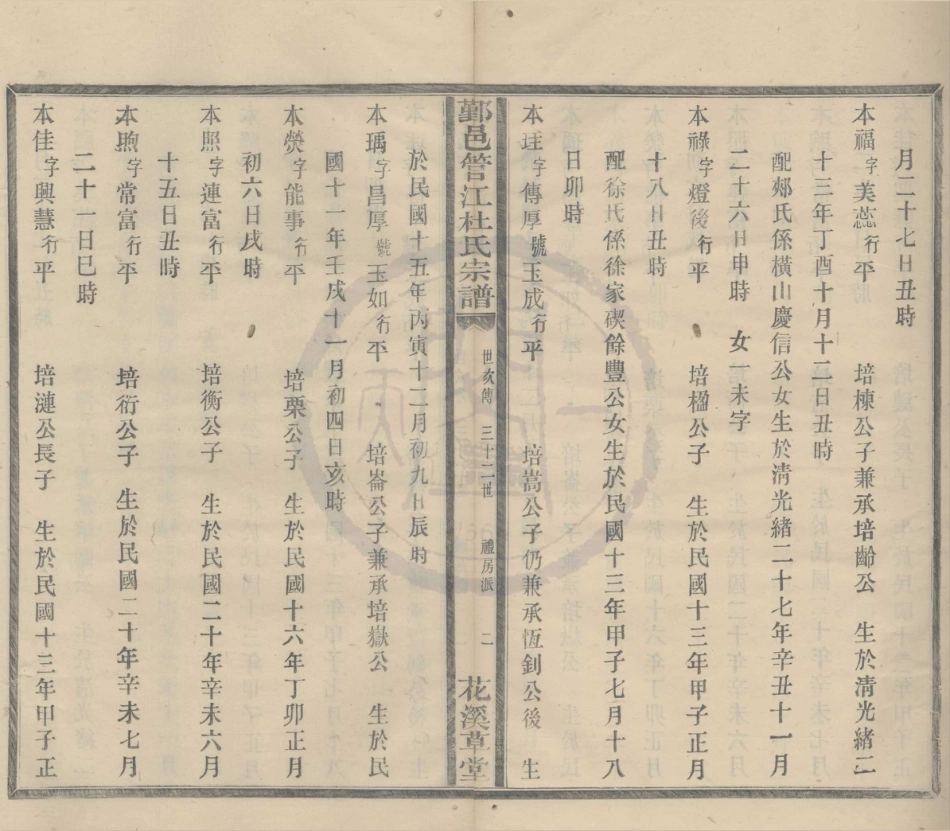 月二十七日丑時
本福字美蕊行平　培棟公子兼承培齡公　生於清光緒二
十三年丁酉十月十二日丑時
配郯氏係橫山慶信公女生於清光緒二十七年辛丑十一月
二十六日申時　女未字
本祿字燈後行平　培楹公子　生於民國十三年甲子正月
十八日丑時
配徐氏係徐家碶餘豐公女生於民國十三年甲子七月十八
日卯時
本玨字傳厚號玉成行平　培嵩公子仍兼承恆釗公後　生
於民國十五年丙寅十二月初九日辰時
鄞邑管江杜氏宗譜　世次傳　三十二世　禮房派　二　花溪草堂
本瑀字昌厚號玉如行平　培崙公子兼承培嶽公　生於民
國十一年壬戌十一月初四日亥時
本熒字能事行平　培栗公子　生於民國十六年丁卯正月
初六日戌時
本照字連富行平　培衡公子　生於民國二十年辛未六月
十五日丑時
本煦字常富行平　培衍公子　生於民國二十年辛未七月
二十一日巳時
本佳字興慧行平　培漣公長子　生於民國十三年甲子正